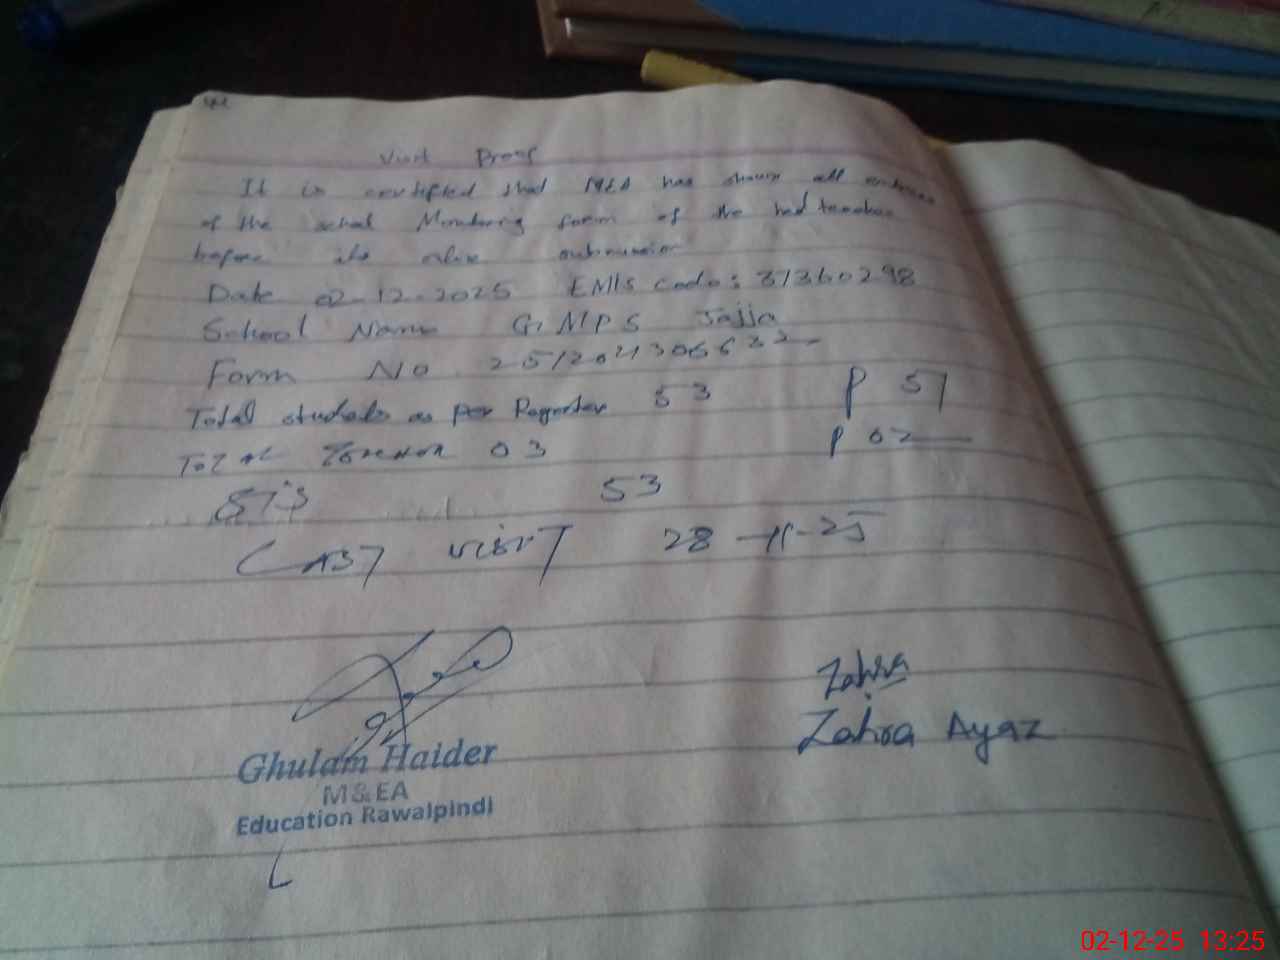 Visit Proof
It is certified that MEA has shown all entries
of the school Monitoring form of the head teacher
before its online submission
Date 02-12-2025 EMIS code: 37360298
School Name G.MPS Jajja
Form No
Total students as per Register 53 P 51
Total 03 P 02
SIS 53
LAST VISIT 28-11-25
Zahra
Zahra Ayaz
Ghulam Haider
M&EA
Education Rawalpindi
02-12-25 13:25